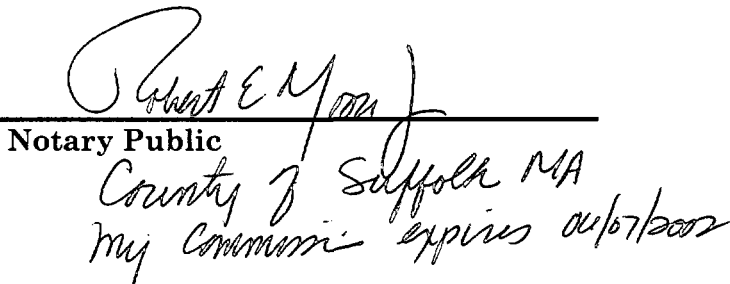 Robert E Moore Jr
Notary Public
County of Suffolk MA
My Commission expires 06/07/2002